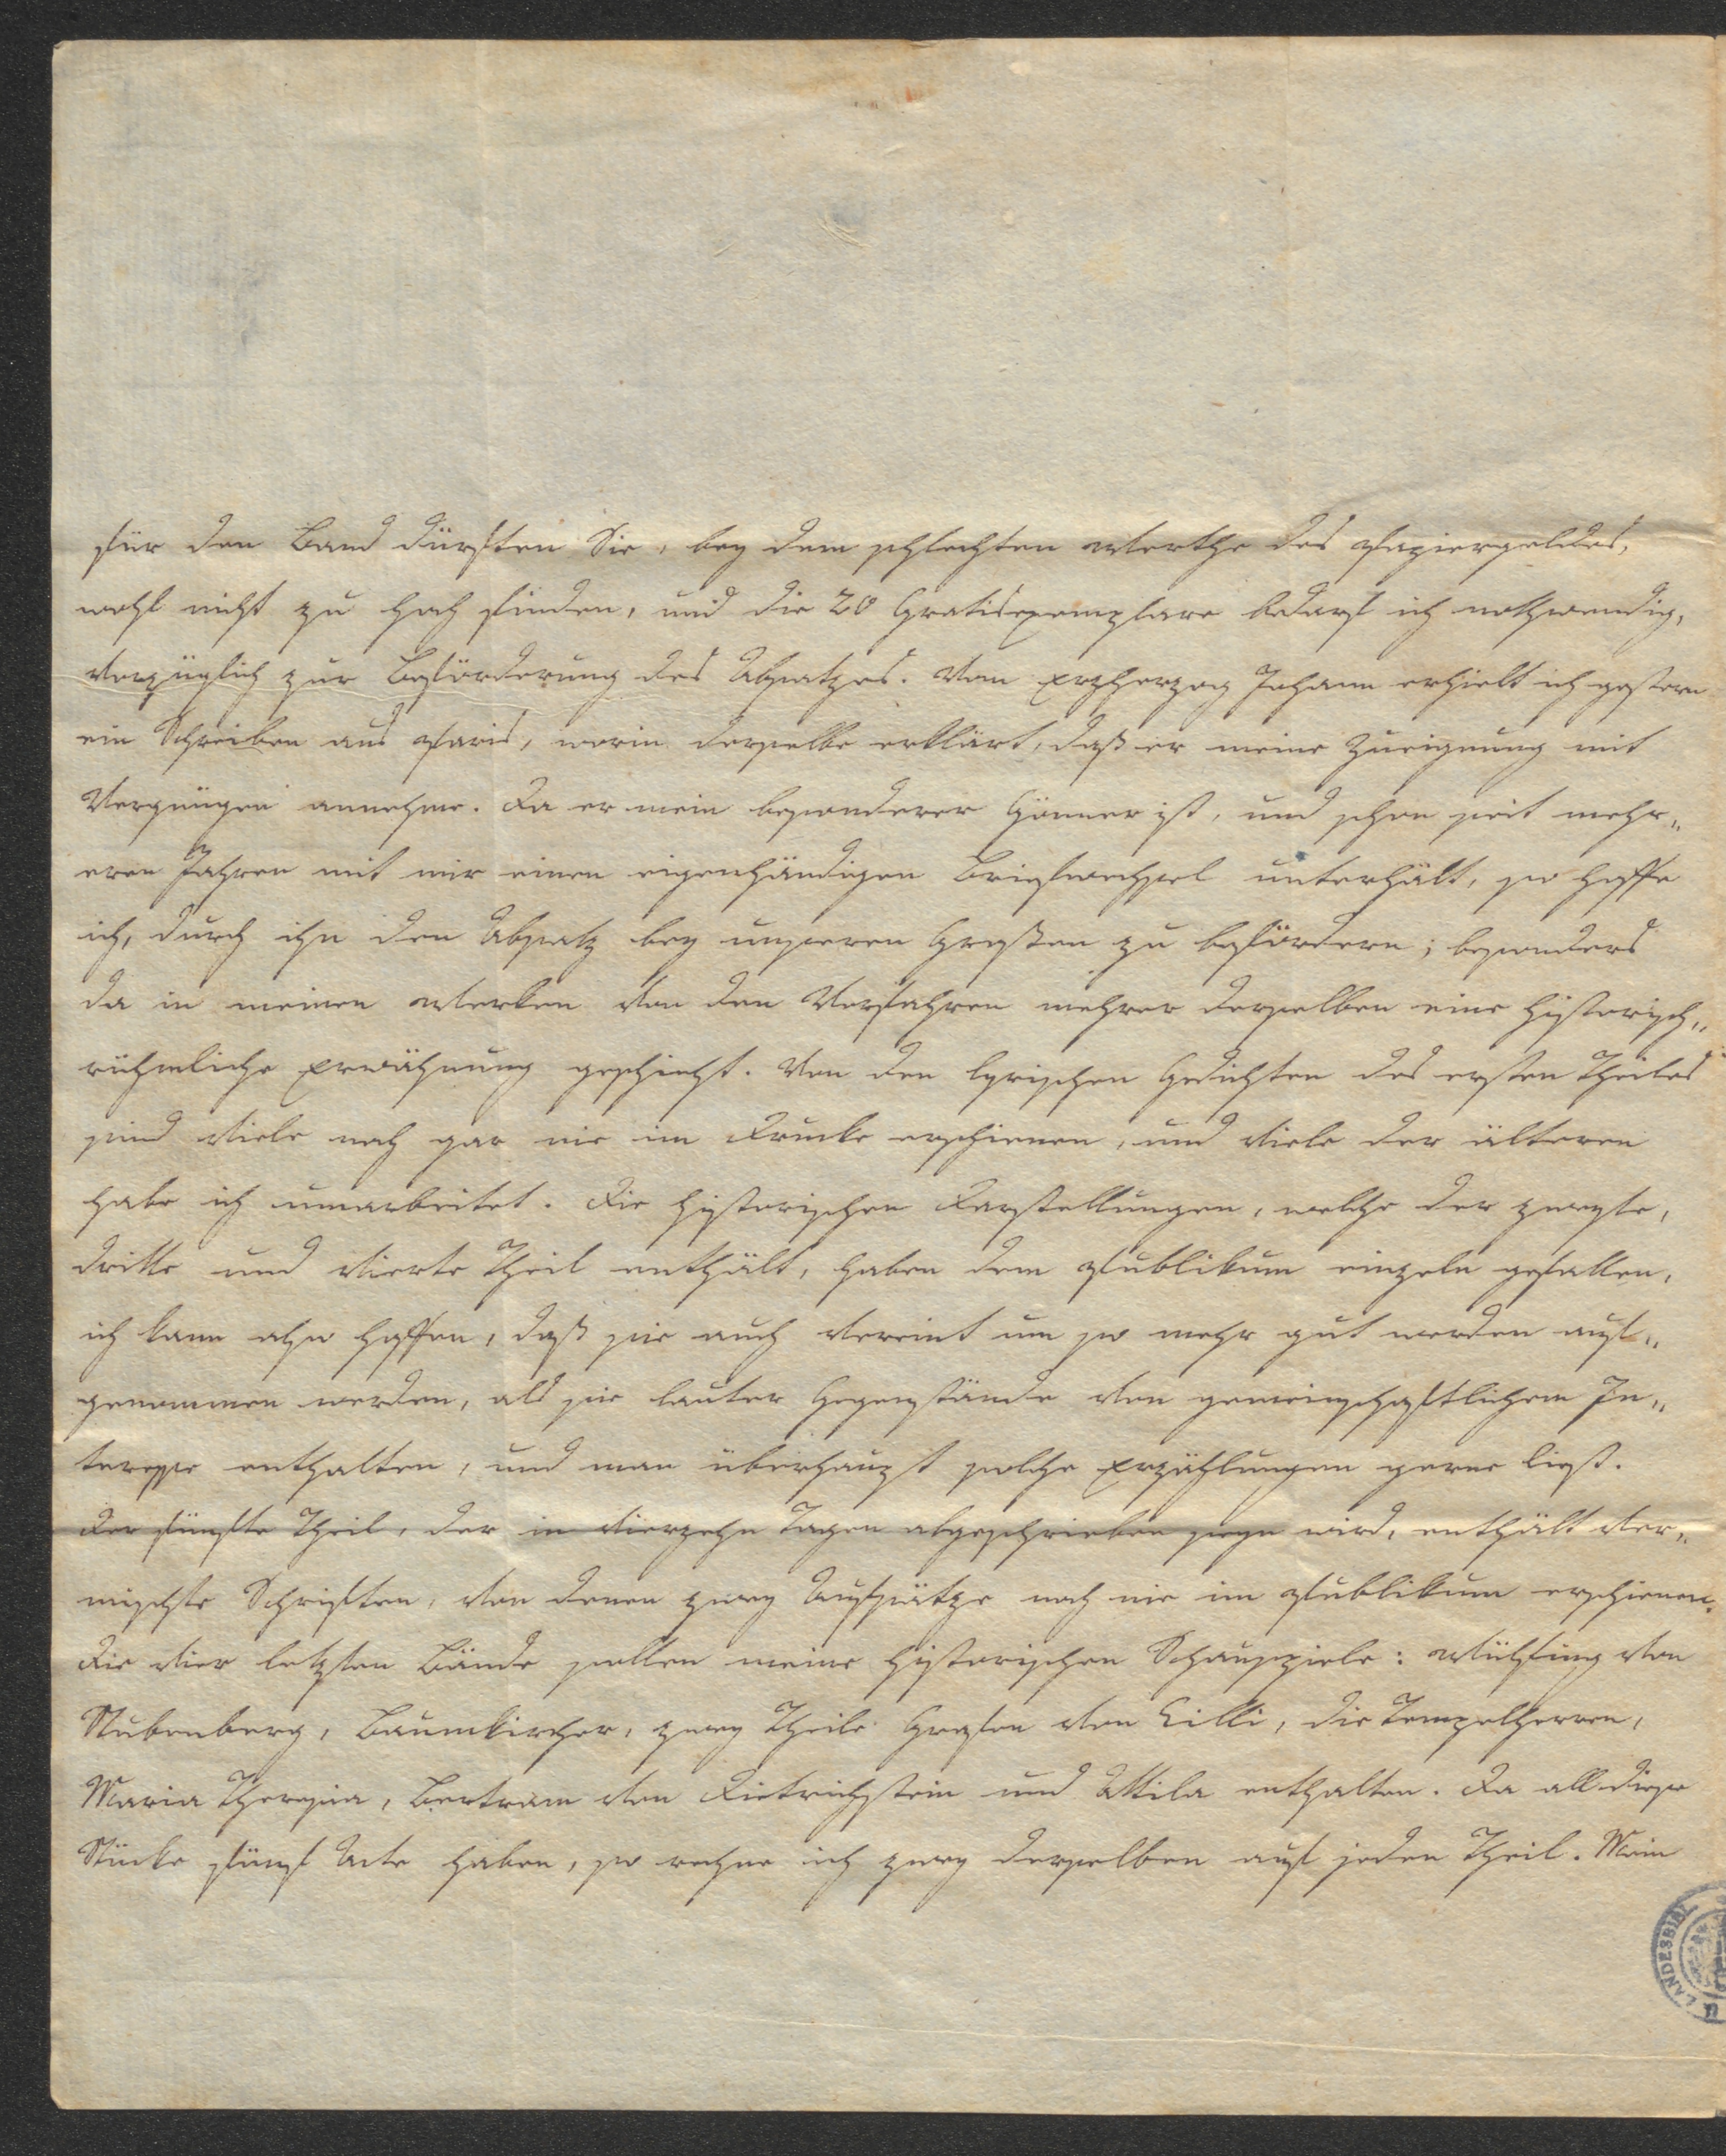 für den Band dürften Sie, bey dem schlechten Werthe des Papiergeldes,
wohl nicht zu hoch finden, und die 20 Gratisexemplare bedarf ich nothwendig,
vorzüglich zur Beförderung des Absatzes. Vom Erzherzog Johann erhielt ich gestern
ein Schreiben aus Paris, worin derselbe erklärt, daß er meine Zueignung mit
Vergnügen annehme. Da er mein besonderer Gönner ist, und schon seit mehr„
eren Jahren mit mir einen eigenhändigen Briefwechsel unterhält, so hoffe
ich, durch ihn den Absatz bey unseren Großen zu befördern; besonders
da in meinen Werken von den Vorfahren mehrer derselben eine historisch„
rühmliche Erwähnung geschieht. Von den lyrischen Gedichten des ersten Theiles
sind viele noch gar nie im Drucke erschienen, und viele der älteren
habe ich umarbeitet. Die historischen Darstellungen, welche der zweyte,
dritte und vierte Theil enthält, haben dem Publikum einzeln gefallen,
ich kann also hoffen, daß sie auch vereint um so mehr gut werden auf„
genommen werden, als sie lauter Gegenstände von gemeinschaftlichem In„
teresse enthalten, und man überhaupt solche Erzählungen gerne liest.
Der fünfte Theil, der in vierzehn Tagen abgeschrieben seyn wird, enthält ver„
mischte Schriften, von denen zwey Aufsätze noch nie im Publikum erschienen.
Die vier letzten Bände sollen meine historischen Schauspiele: Wülfing von
Stubenberg, Baumkircher, zwey Theile Grafen von Cilli, die Tempelherren,
Maria Theresia, Bertram von Dietrichstein und Attila enthalten. Da all diese
Stücke fünf Acte haben, so rechne ich zwey derselben auf jeden Theil. Mein
LANDESBIBL